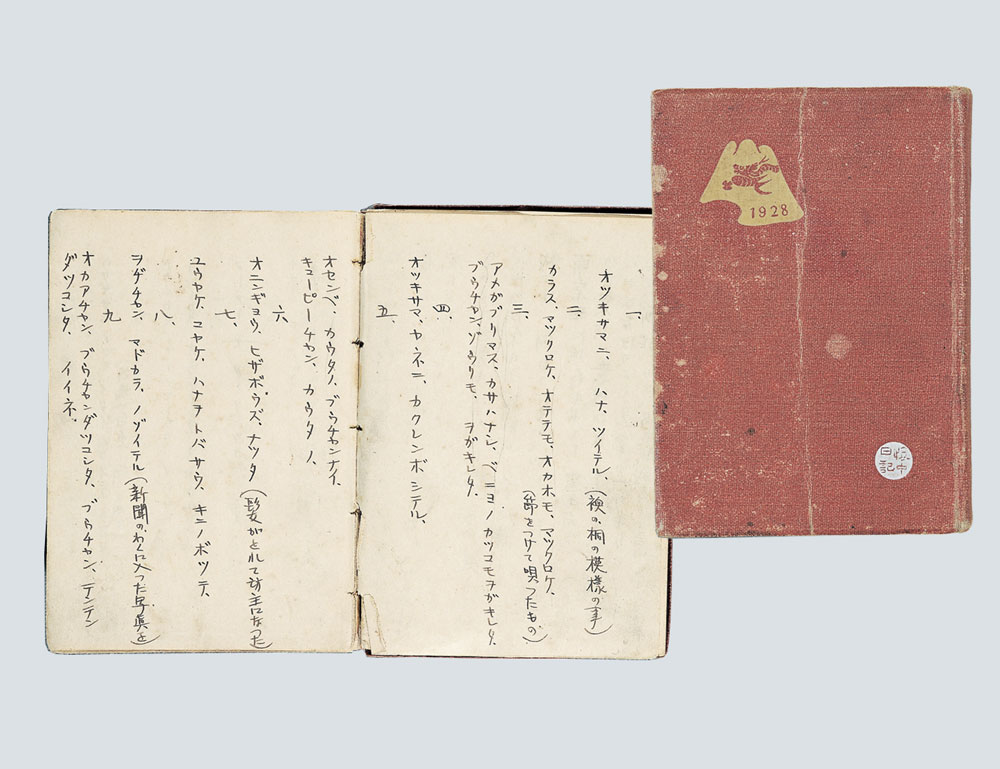 一、
オツキサマニ、 ハナ、ツイテル、(襖の桐の模様の事)
二、
カラス、マツクロケ、オテテモ、オカホモ、マツクロケ、
(節をつけて唄つたもの)
三、
アメガフリマス、カサハナシ、ベニヨノカツコモヲガキレタ、
ブウチヤン、ゾウリモ、ヲガキレタ、
四、
オツキサマ、ヤネニ、カクレンボシテル、
五、
オセンベ、カウタノ、ブウチヤンナイ、
キューピーチヤン、カウタノ、
六、
オニンギョウ、ヒザボウズ、ナツタ(髪がとれて坊主になつた)
七、
ユウヤケ、コヤケ、ハナヲトバサウ、キニノボツテ、
八、
ヲヂチヤン、マドカラ、ノゾイテル(新聞のわくに入つた写真を)
九
オカアチヤン、ブウチヤンダツコシタ、ブウチヤン、デンデン
ダツコシタ、イイネ、
1928
懐中
日記